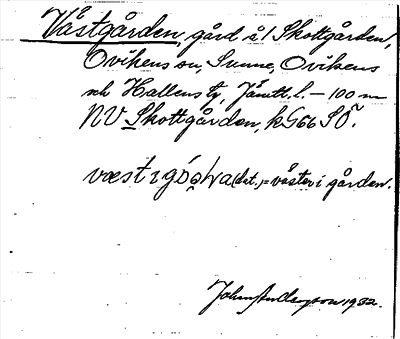 Västgården, gård å 1 Skottgården,
Ovikens sn, Sunne, Ovikens
och Hallens tg, Jämtl. l. – 100 m
NV Skottgården, k G66 SÖ.
væst i (dat.) = väster i gården.
John Andersson 1932.